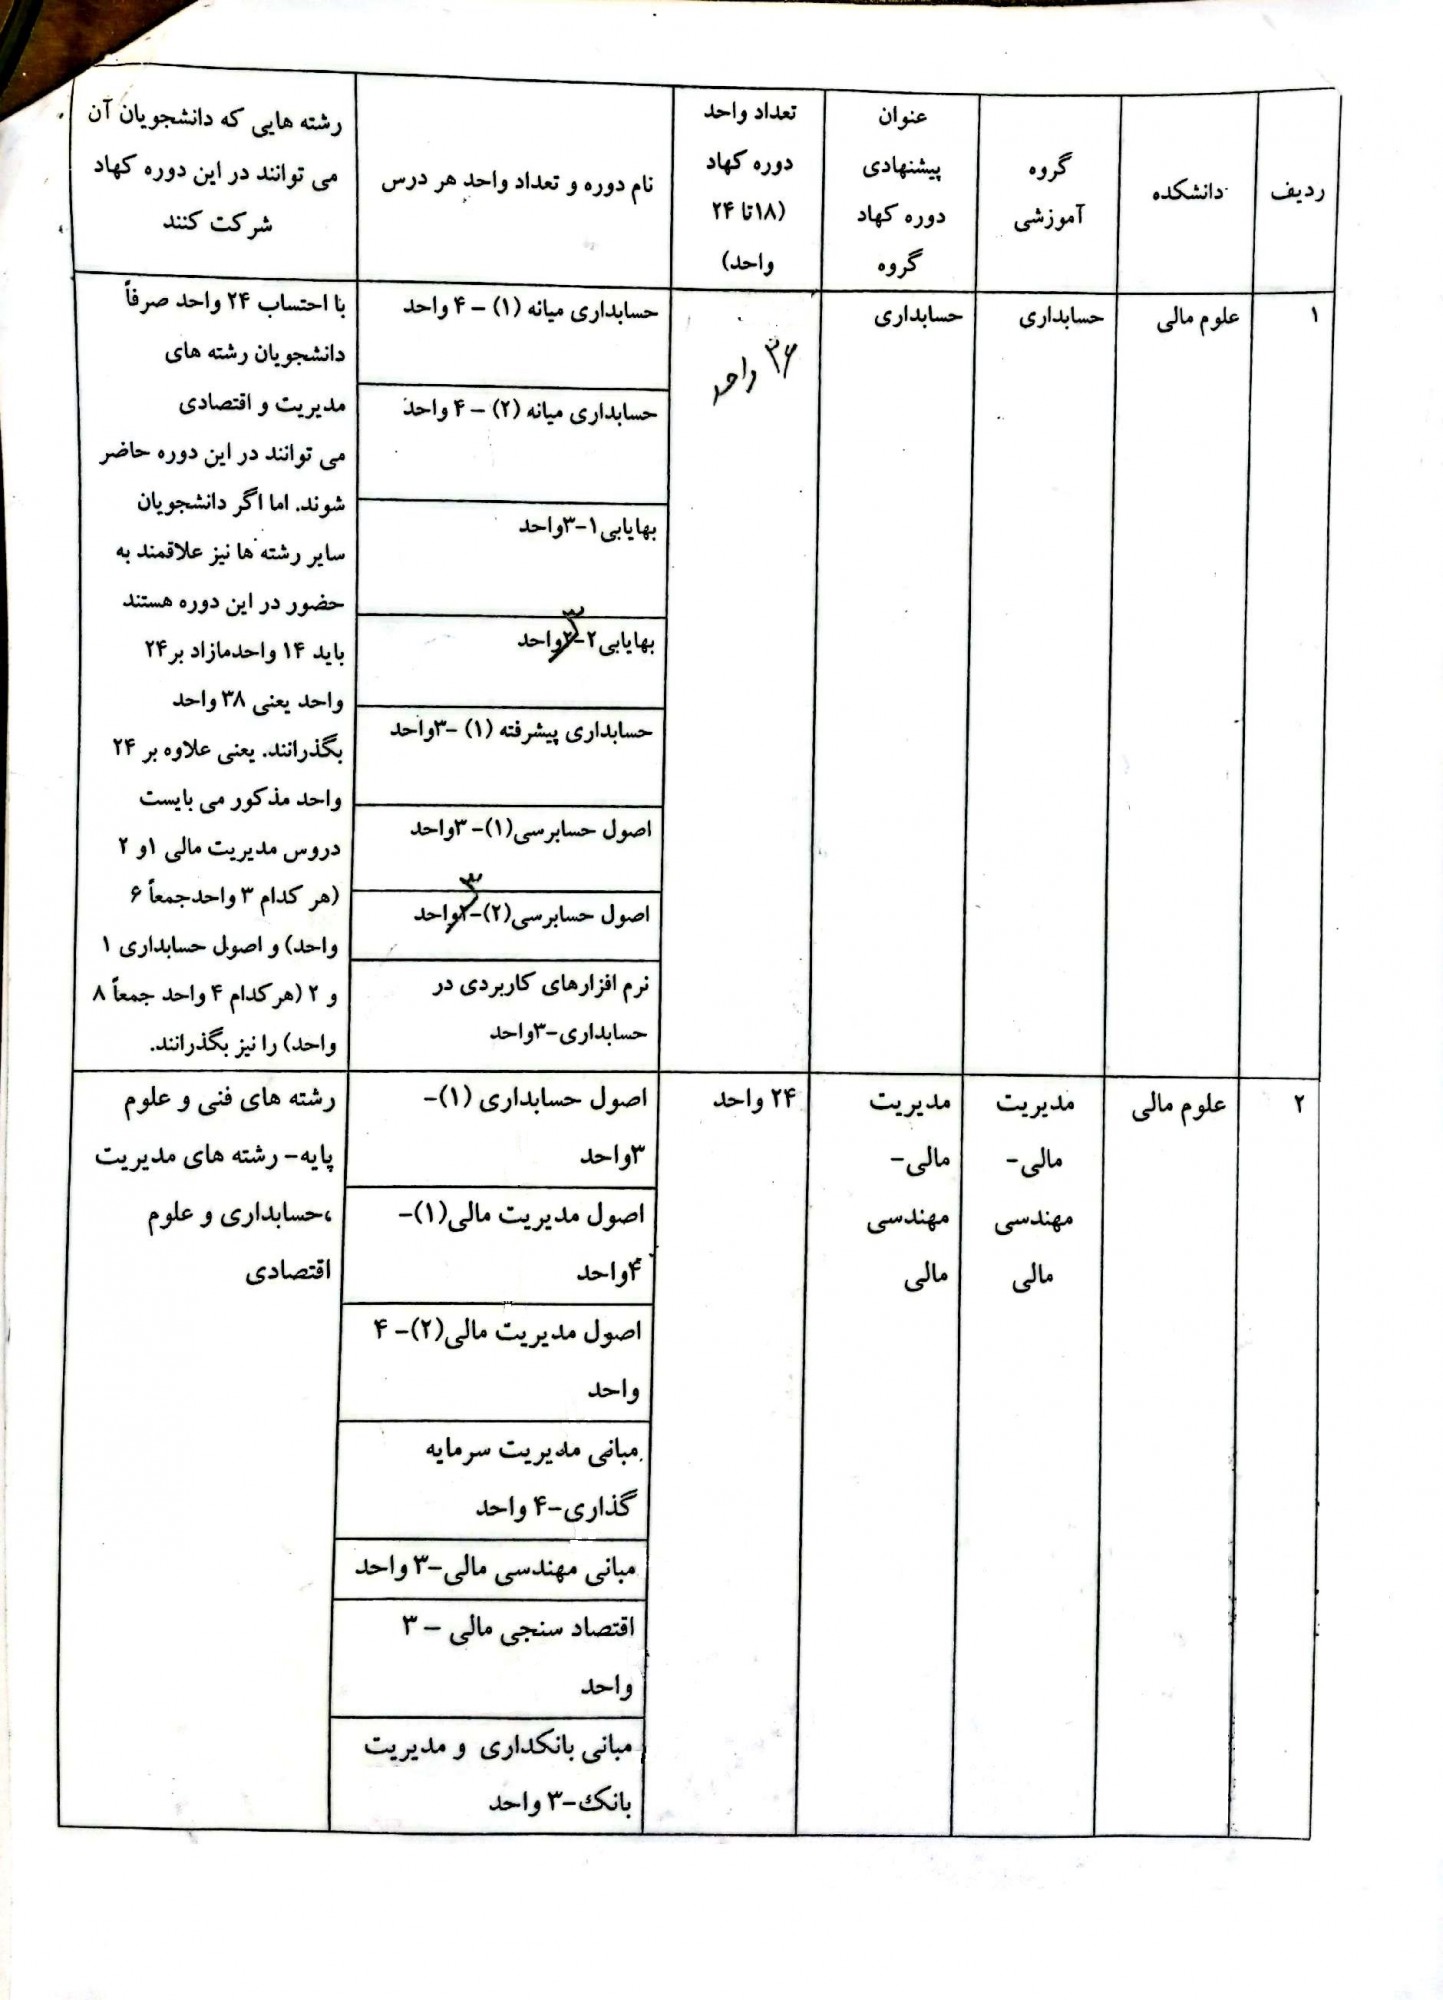 ردیف
دانشکده
گروه
آموزشی
عنوان
پیشنهادی
دوره کهاد
گروه
تعداد واحد
دوره کهاد
(۱۸تا ۲۴
واحد)
نام دوره و تعداد واحد هر درس
رشته هایی که دانشجویان آن
می توانند در این دوره کهاد
شرکت کنند
۱
علوم مالی
حسابداری
حسابداری
واحد
حسابداری میانه (۱) – ۴ واحد
حسابداری میانه (۲) – ۴ واحد
بهایابی۱-۳واحد
بهایابی۲-۳واحد
حسابداری پیشرفته (۱) –۳واحد
اصول حسابرسی(۱)-۳واحد
اصول حسابرسی(۲)-۳واحد
نرم افزارهای کاربردی در
حسابداری-۳واحد
با احتساب ۲۴ واحد صرفاً
دانشجویان رشته های
مدیریت و اقتصادی
می توانند در این دوره حاضر
شوند. اما اگر دانشجویان
سایر رشته ها نیز علاقمند به
حضور در این دوره هستند
باید ۱۴ واحدمازاد بر۲۴
واحد یعنی ۳۸ واحد
بگذرانند. یعنی علاوه بر ۲۴
واحد مذکور می بایست
دروس مدیریت مالی ۱و ۲
(هر کدام ۳ واحدجمعاً ۶
واحد) و اصول حسابداری ۱
و ۲ (هرکدام ۴ واحد جمعاً ۸
واحد) را نیز بگذرانند.
۲
علوم مالی
مدیریت
مالی-
مهندسی
مالی
مدیریت
مالی-
مهندسی
مالی
۲۴ واحد
اصول حسابداری (۱)-
۳واحد
اصول مدیریت مالی(۱)-
۴واحد
اصول مدیریت مالی(۲)- ۴
واحد
مبانی مدیریت سرمایه
گذاری-۴ واحد
مبانی مهندسی مالی-۳ واحد
اقتصاد سنجی مالی – ۳
واحد
مبانی بانکداری و مدیریت
بانک-۳ واحد
رشته های فنی و علوم
پایه- رشته های مدیریت
،حسابداری و علوم
اقتصادی